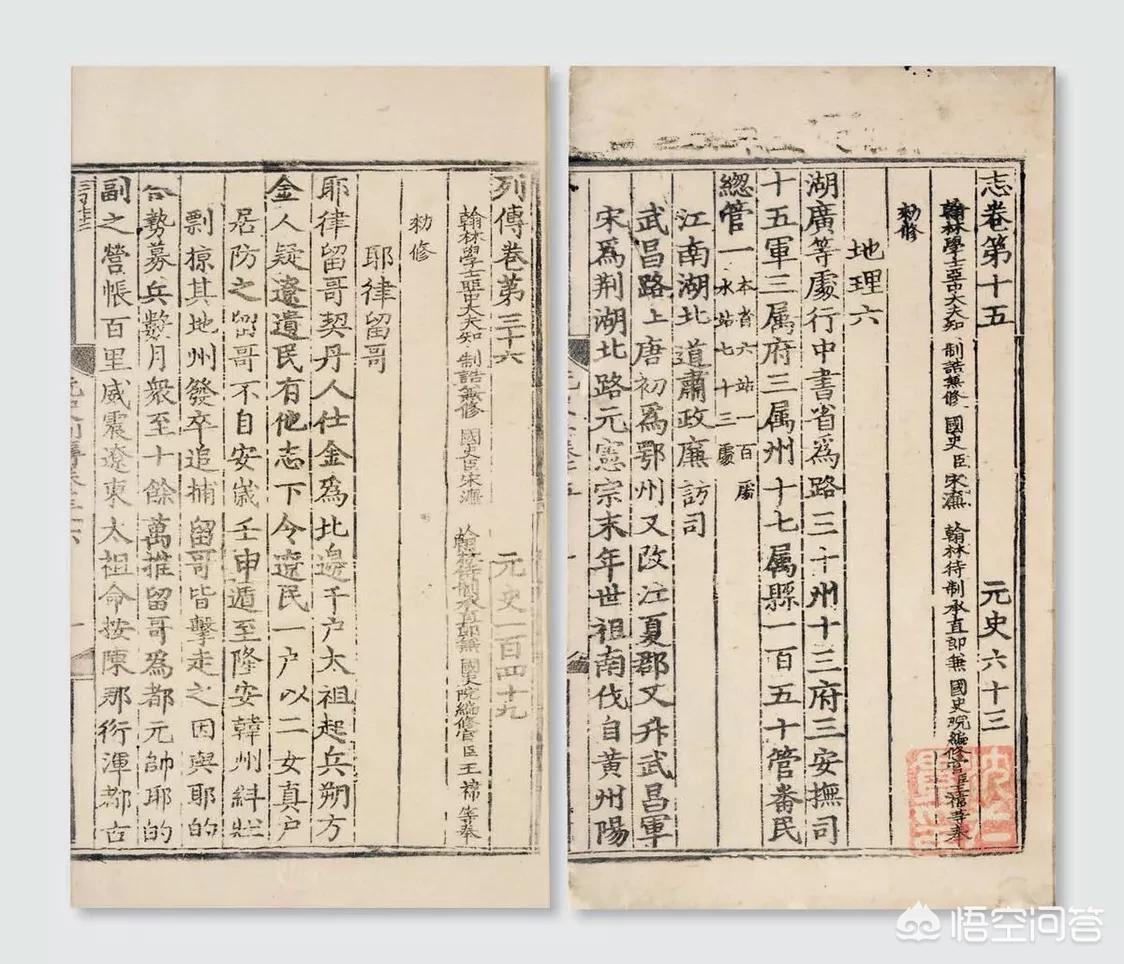 志卷第十五 元史六十三
翰林學士亞中大夫知 制誥兼修 國史臣宋濂 翰林待制承直郎兼 國史院編修官臣王禕等奉
勑修
地理六
湖廣等處行中書省爲路三十州十三府三安撫司
十五軍三屬府三屬州十七屬縣一百五十管番民
總管一
本省六站一百屬
水站七十三處
江南湖北道肅政廉訪司
武昌路上唐初爲鄂州又改江夏郡又升武昌軍
宋爲荆湖北路元憲宗末年世祖南伐自黃州陽
列傳卷第三十六 元史一百四十九
翰林學士亞中大夫知 制誥兼修 國史臣宋濂 翰林待制承直郎兼 國史院編修官臣王禕等奉
勑修
耶律留哥
耶律留哥契丹人仕金爲北邊千户太祖起兵朔方
金人疑遼遺民有他志下令遼民一户以二女真户
居防之留哥不自安歲壬申遁至隆安韓州糾壯
剽掠其地州發卒追捕留哥皆擊走之因與耶的
合勢募兵數月衆至十餘萬推留哥爲都元帥耶的
副之營帳百里威震遼東太祖命按陳那衍渾都古
悟空问答